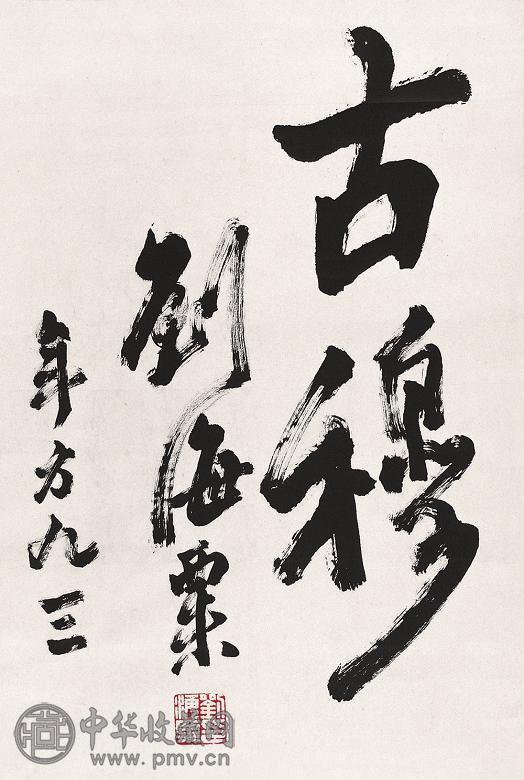 古穆
劉海粟
年方九三
中华收藏网
www.pmv.cn